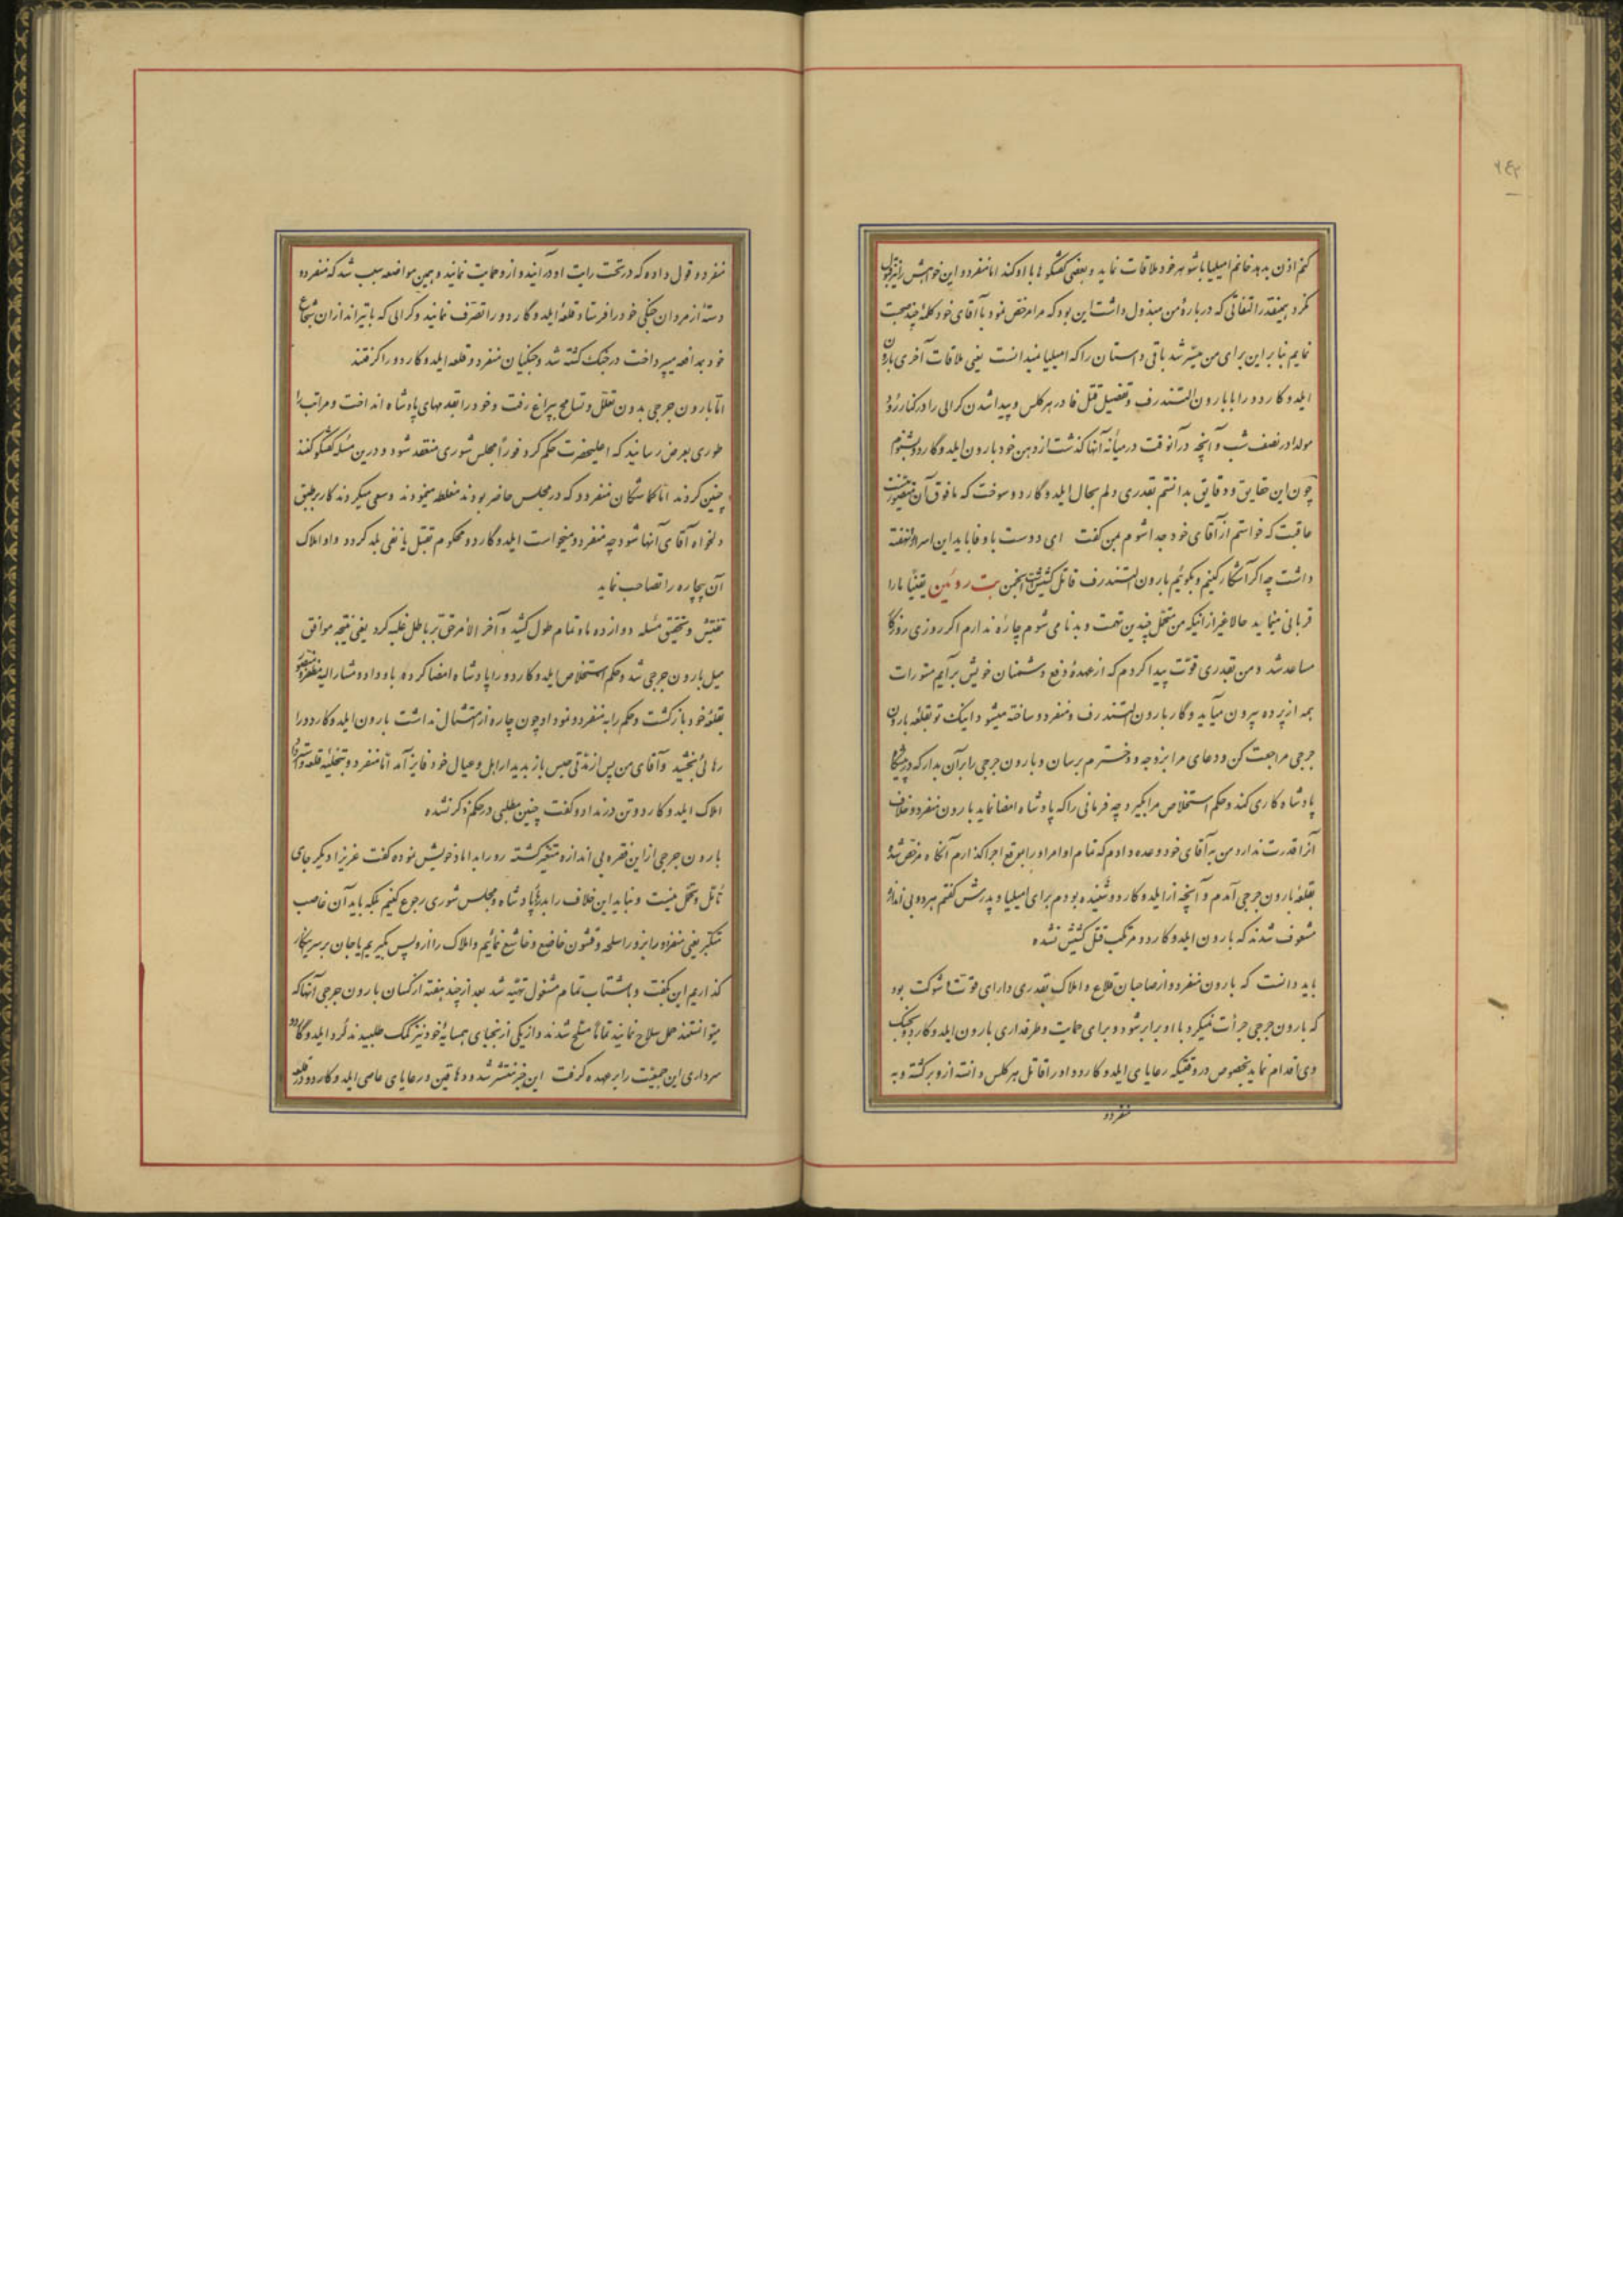 ۲۴۲
کنم اذن بدهد خانم امیلیا با شوهر خود ملاقات نماید و بعضی گفتگوها با او کند اما منفردو این خواهش را نیز قبول
نکرد همینقدر التفاتی که در بارهٔ من مبذول داشت این بود که مرا مرخص نمود با آقای خود کلمهٔ چند صحبت
نمایم بنا بر این برای من میسر شد باقی داستان را که امیلیا نمیدانست یعنی ملاقات آخری بارون
ایلدوکاردو را با بارون الشندرف و تفصیل قتل فادر هرکلس و پیدا شدن کرالی را در کنار رود
مولداو در نصف شب و آنچه در آنوقت در میانهٔ آنها گذشت از دهن خود بارون ایلدوگاردو بشنوم
چون این حقایق و دقایق بدانستم بقدری دلم بحال ایلدوگاردو سوخت که مافوق آن متصور نیست
عاقبت که خواستم از آقای خود جدا شوم بمن گفت ای دوست باوفا باید این اسرار را نهفته
داشت چه اگر آشکار کنیم و بگوئیم بارون الشندرف قاتل کشیش است انجمن بت روئین یقیناً ما را
قربانی مینماید حالا غیر از اینکه من متحمل چندین تهمت و بدنامی شوم چارهٔ ندارم اگر روزی روزگار
مساعد شد و من بقدری قوّت پیدا کردم که از عهدهٔ دفع دشمنان خویش برآیم مستورات
همه از پرده بیرون میآید و کار بارون الشندرف و منفردو ساخته میشود اینک تو بقلعه بارون
جرجی مراجعت کن و دعای مرا بزوجه و دخترم برسان و بارون جرجی را بر آن بدار که در پیشگاه
پادشاه کاری کند و حکم استخلاص مرا بگیرد چه فرمانی را که پادشاه امضا نماید بارون منفردو خلاف
آنرا قدرت ندارد من به آقای خود وعده دادم که تمام اوامر او را بموقع اجرا گذارم آنگاه مرخص شده
بقلعهٔ بارون جرجی آمدم و آنچه از ایلدوکاردو شنیده بودم برای امیلیا و پدرش گفتم هر دو بی اندازه
مشعوف شدند که بارون ایلدوکاردو مرتکب قتل کشیش نشده
باید دانست که بارون منفردو از صاحبان قلاع و املاک بقدری دارای قوّت و شوکت بود
که بارون جرجی جرأت نمیکرد با او برابر شود و برای حمایت و طرفداری بارون ایلدوکاردو بجنگ
وی اقدام نماید بخصوص در وقتیکه رعایای ایلدوکاردو او را قاتل هرکلس دانسته ازو برگشته و به
منفردو
منفردو قول داده که در تحت رایت او در آیند و ازو حمایت نمایند و همین مواضعه سبب شد که منفردو
دستهٔ از مردان جنگی خود را فرستاد قلعهٔ ایلدوگاردو را تصرف نمایند و کرالی که با تیراندازان شجاع
خود بمدافعه میپرداخت در جنگ کشته شد و جنگیان منفردو قلعه ایلدوکاردو را گرفتند
امّا بارون جرجی بدون تعلل و تسامح بپراغ رفت و خود را بقدمهای پادشاه انداخت و مراتب را
طوری بعرض رسانید که اعلیحضرت حکم کرد فوراً مجلس شوری منعقد شود و درین مسئله گفتگو کنند
چنین کردند اما گماشتگان منفردو که در مجلس حاضر بودند مغلطه مینمودند و سعی میکردند کار بر طبق
دلخواه آقای آنها شود چه منفردو میخواست ایلدوگاردو محکوم بقتل یا نفی بلد گردد و او املاک
آن بیچاره را تصاحب نماید
تفتیش و تحقیق مسئله دوازده ماه تمام طول کشید و آخر الامر حق بر باطل غلبه کرد یعنی نتیجه موافق
میل بارون جرجی شد و حکم استخلاص ایلدوکاردو را پادشاه امضا کرده باو داد و مشار الیه مظفر و منصور
بقلعهٔ خود بازگشت و حکم را به منفردو نمود او چون چاره از امتثال نداشت بارون ایلدوکاردو را
رهائی بخشید و آقای من پس از مدتی حبس باز بدیدار اهل و عیال خود فایز آمد اما منفردو بتخلیه قلعه و استرداد
املاک ایلدوکاردو تن در نداد و گفت چنین مطلبی در حکم ذکر نشده
بارون جرجی از این فقره بی اندازه متغیر گشته رو را بداماد خویش نموده گفت عزیزا دیگر جای
تأمل و تحمل نیست و نباید این خلاف را بدربار پادشاه و مجلس شوری رجوع کنیم بلکه باید آن غاصب
متکبر یعنی منفردو را بزور اسلحه و قشون خاضع و خاشع نمائیم و املاک را ازو پس بگیریم یا جان بر سر اینکار
گذاریم این بگفت و باشتاب تمام مشغول تهیه شد بعد از چند هفته از کسان بارون جرجی آنها که
میتوانستند حمل سلاح نمایند تماماً مسلح شدند و از یکی از نجبای همسایهٔ خود نیز کمک طلبیدند گرد ایلدوگاردو
سرداری این جمعیّت را بر عهده گرفت این خبر منتشر شد و دهاقین و رعایای عاصی ایلدوکاردو در قلعه